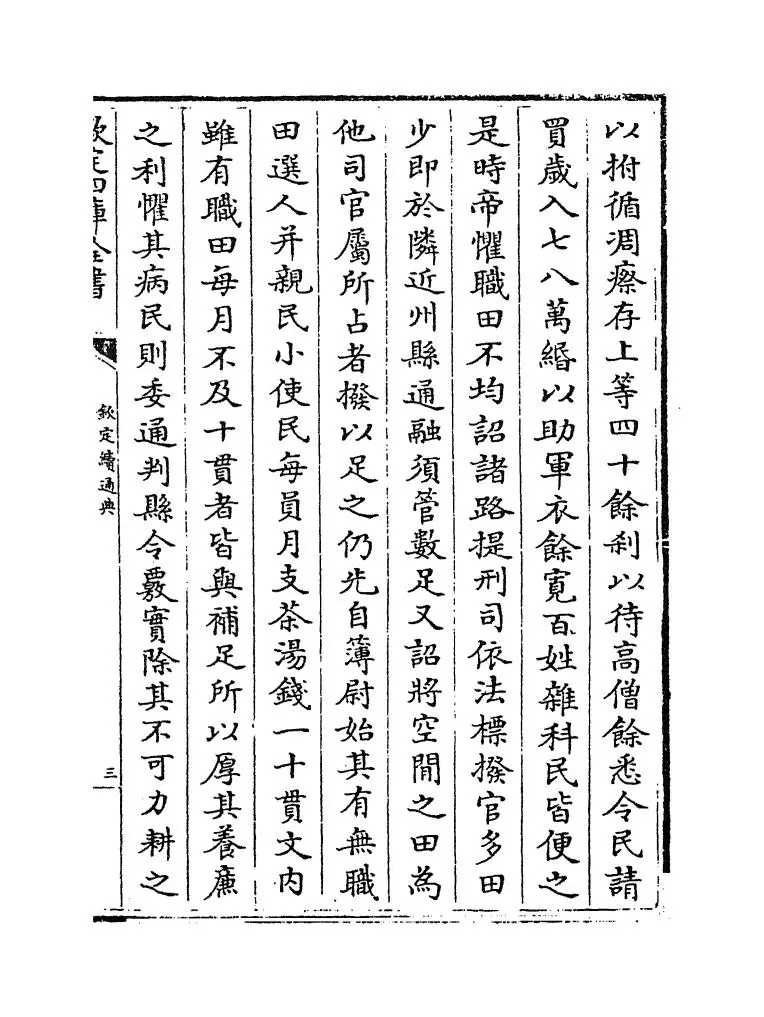 以拊循凋瘵存上等四十餘刹以待高僧餘悉令民請
買歲入七八萬緡以助軍衣餘寛百姓雜科民皆便之
是時帝懼職田不均詔諸路提刑司依法標撥官多田
少即於隣近州縣通融須管數足又詔將空閒之田為
他司官屬所占者撥以足之仍先自簿尉始其有無職
田選人并親民小使民每員月支茶湯錢一十貫文内
雖有職田每月不及十貫者皆與補足所以厚其養廉
之利懼其病民則委通判縣令覈實除其不可力耕之
欽定四庫全書
欽定續通典
三